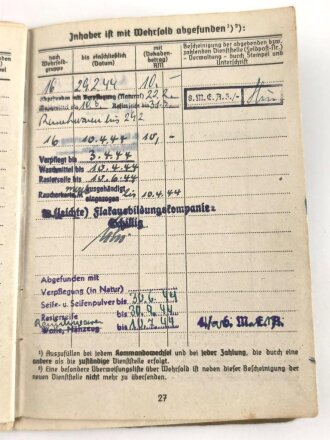 Inhaber ist mit Wehrsold abgefunden¹) ²):
nach Wehrsold-gruppe
bis einschließlich (Datum)
mit (Wehrsold-betrag) RM
Bescheinigung der abgebenden bzw. zahlenden Dienststelle (Feldpost-Nr.) - Verwaltung - durch Stempel und Unterschrift
16 29.2.44 10.-
Abgefunden mit Verpflegung (Natur)
S.M.E.A.
Rauchwaren bis 29.2
16 10.4.44 10,-
Verpflegt bis 3.4.44
Waschmittel bis 10.4.44
Rasierseife bis 10.6.44
Raucherkarte ausgehändigt bis 10.4.44
eingezogen
(leichte) Flakausbildungskompanie
Abgefunden mit
Verpflegung (in Natur) bis
Seife- u. Seifenpulver bis 30.6.44
Rasierseife bis 30.8.44
Rauchwaren bis 10.7.44
¹) Auszufüllen bei jedem Kommandowechsel und bei jeder Zahlung, die durch eine
andere als die zuständige Dienststelle erfolgt.
²) Eine besondere Überweisungsliste über Wehrsold ist neben dieser Bescheinigung der
neuen Dienststelle nicht mehr zu übersenden.
27